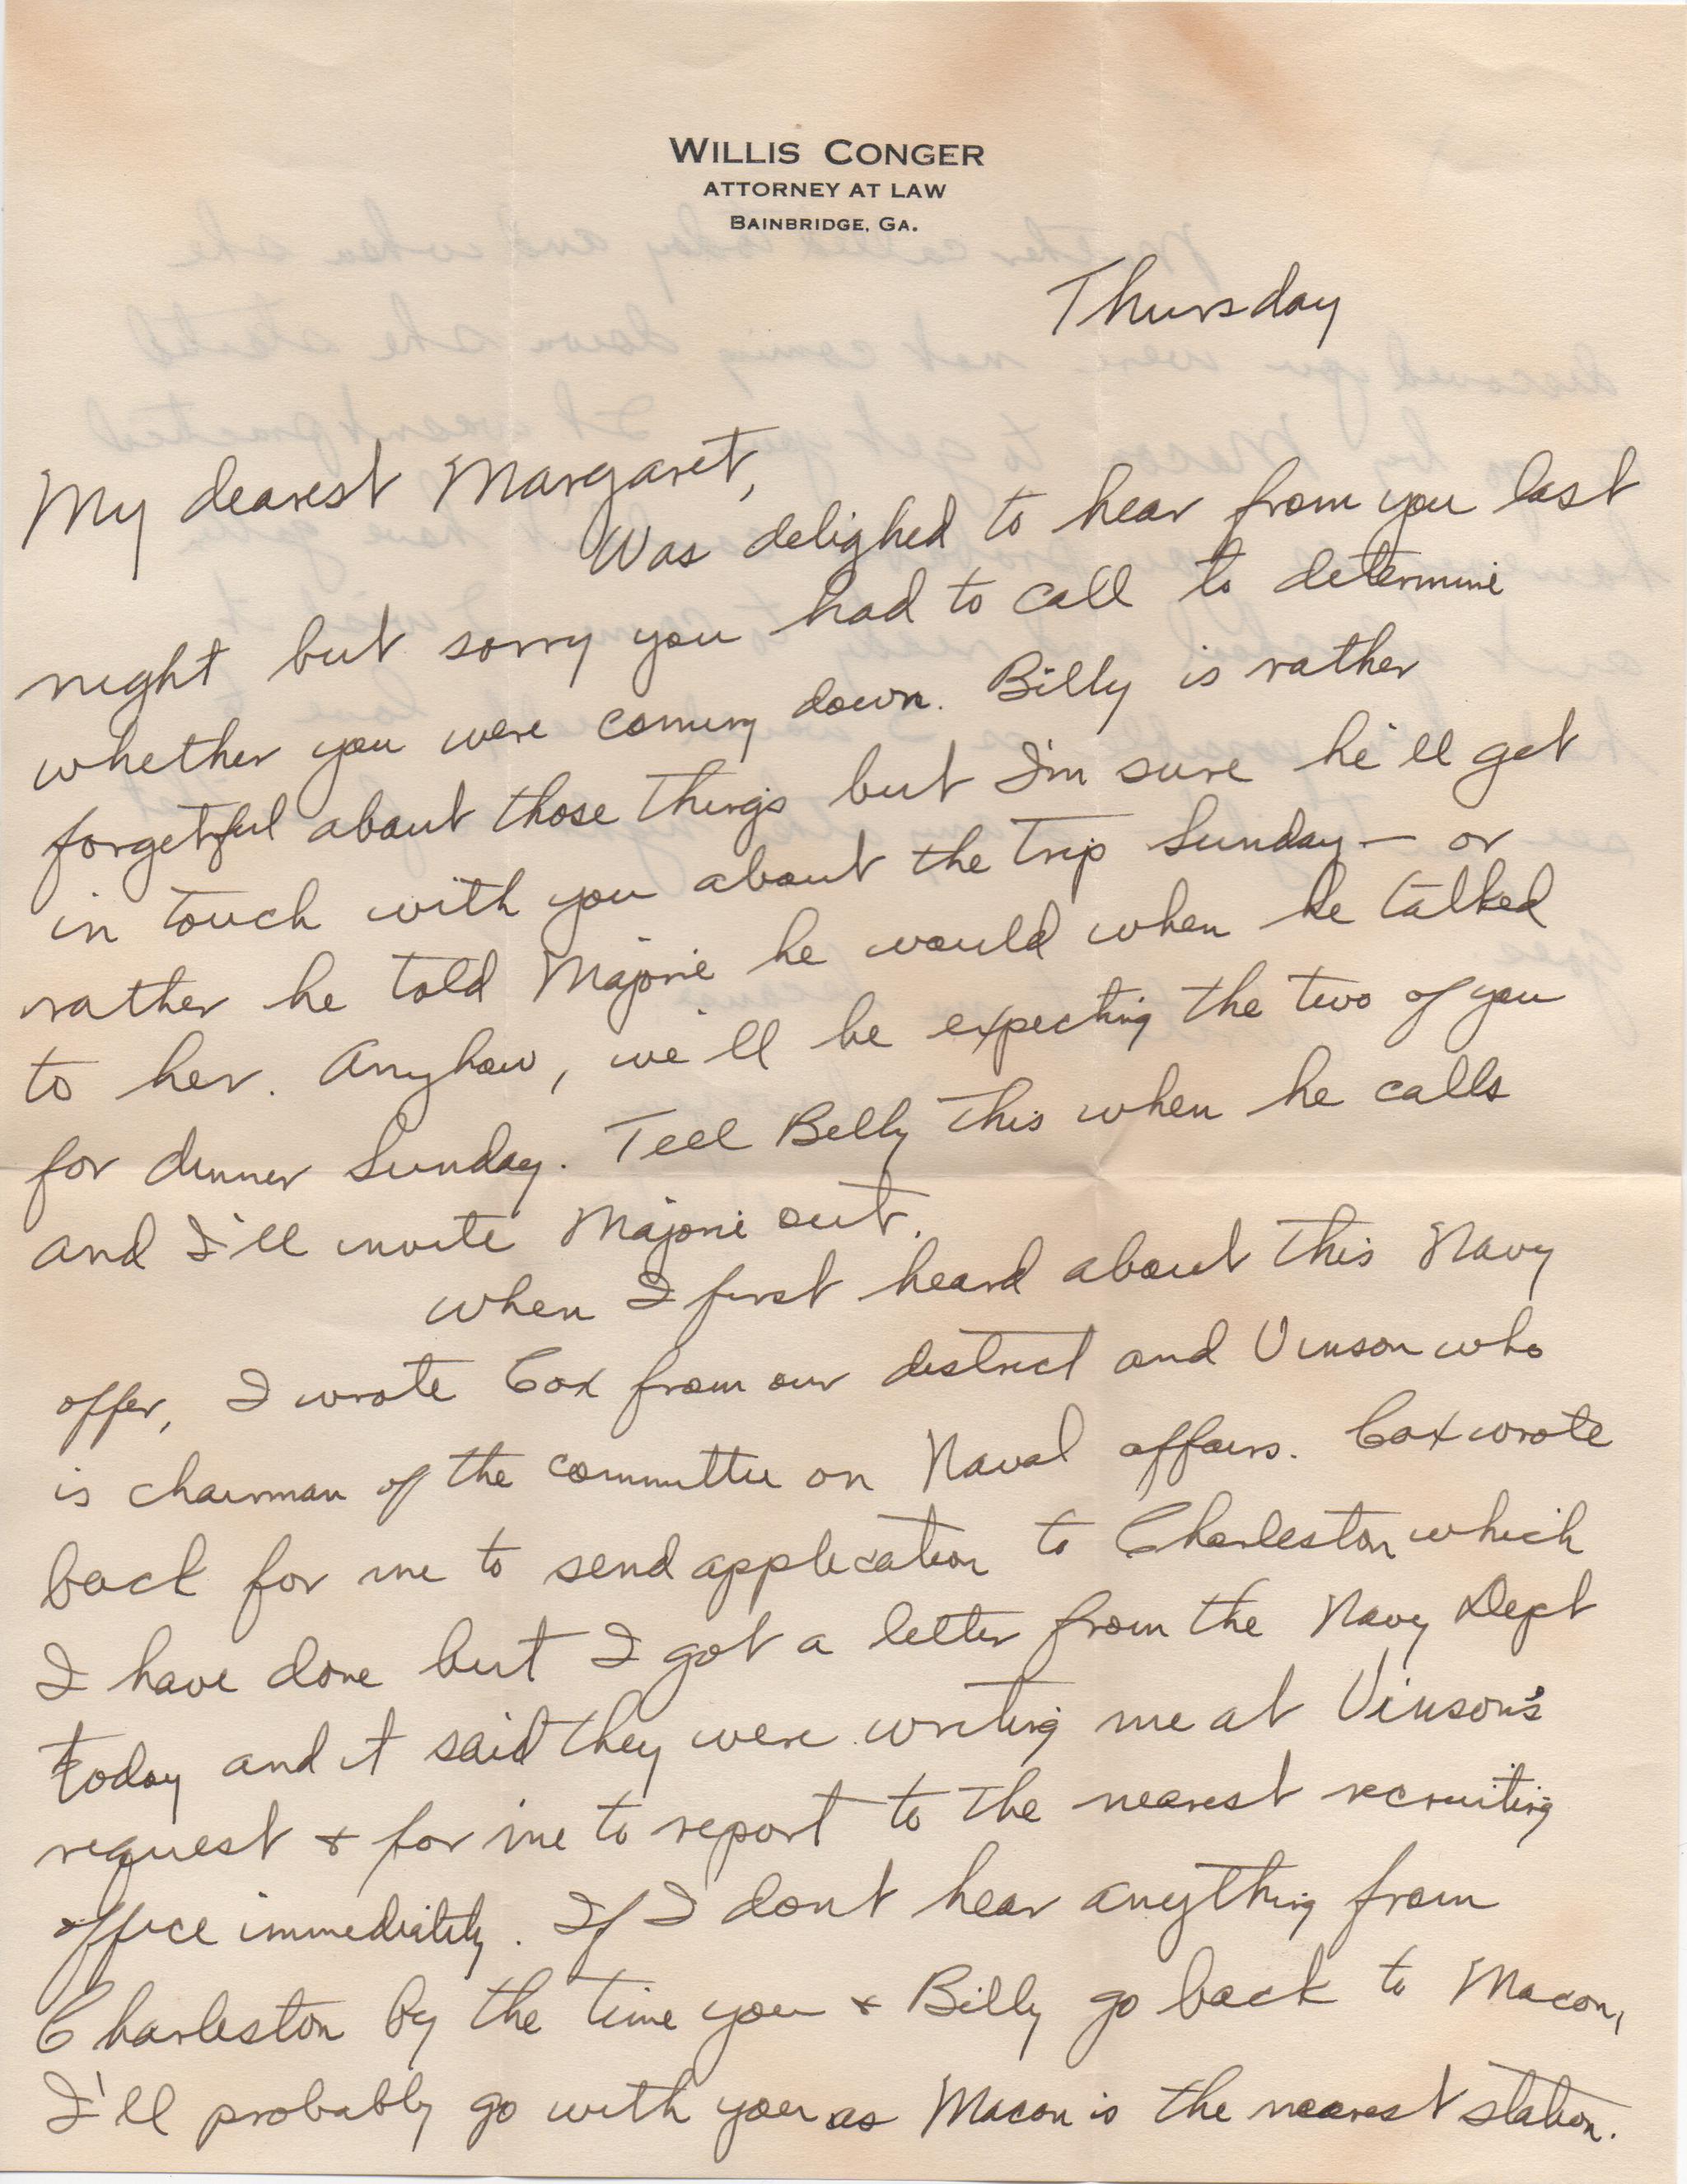 WILLIS CONGER
ATTORNEY AT LAW
BAINBRIDGE, GA.
Thursday
My dearest Margaret,
Was delighed to hear from you last
night but sorry you had to call to determine
whether you were coming down. Billy is rather
forgetful about those things but I'm sure he'll get
in touch with you about the trip Sunday — or
rather he told Majorie he would when he talked
to her. Anyhow, we'll be expecting the two of you
for dinner Sunday. Tell Billy this when he calls
and I'll invite Majorie out.
When I first heard about this Navy
offer, I wrote Cox from our district and Vinson who
is chairman of the committee on Naval affairs. Cox wrote
back for me to send application to Charleston which
I have done but I got a letter from the Navy Dept
today and it said they were writing me at Vinson's
request & for me to report to the nearest recruiting
office immediately. If I dont hear anything from
Charleston by the time you & Billy go back to Macon,
I'll probably go with you as Macon is the nearest station.